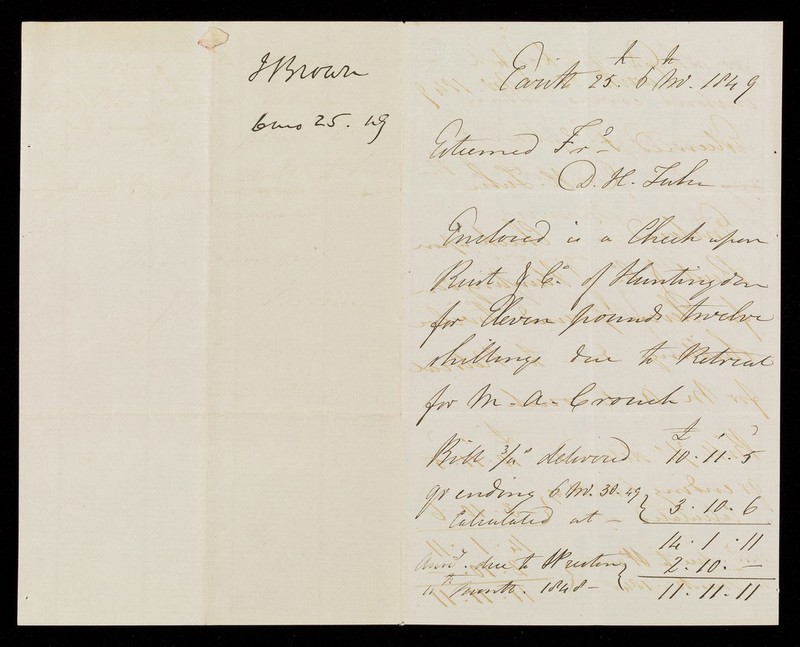 J Brown
6 mo 25. 49
Earith 25th 6th Mo. 1849
Esteemed Frd
D. H. Tuke
Enclosed is a Check upon
Rust & Co. of Huntingdon
for Eleven pounds twelve
shillings due to Retreat
for M. A. Crouch
£ s d
Bill delivered 10. 11. 5
qr ending 6 Mo. 30. 49
Calculated at - } 3. 10. 6
14. 1. 11
due to } 2. 10. -
month. 1848 -
11. 11. 11